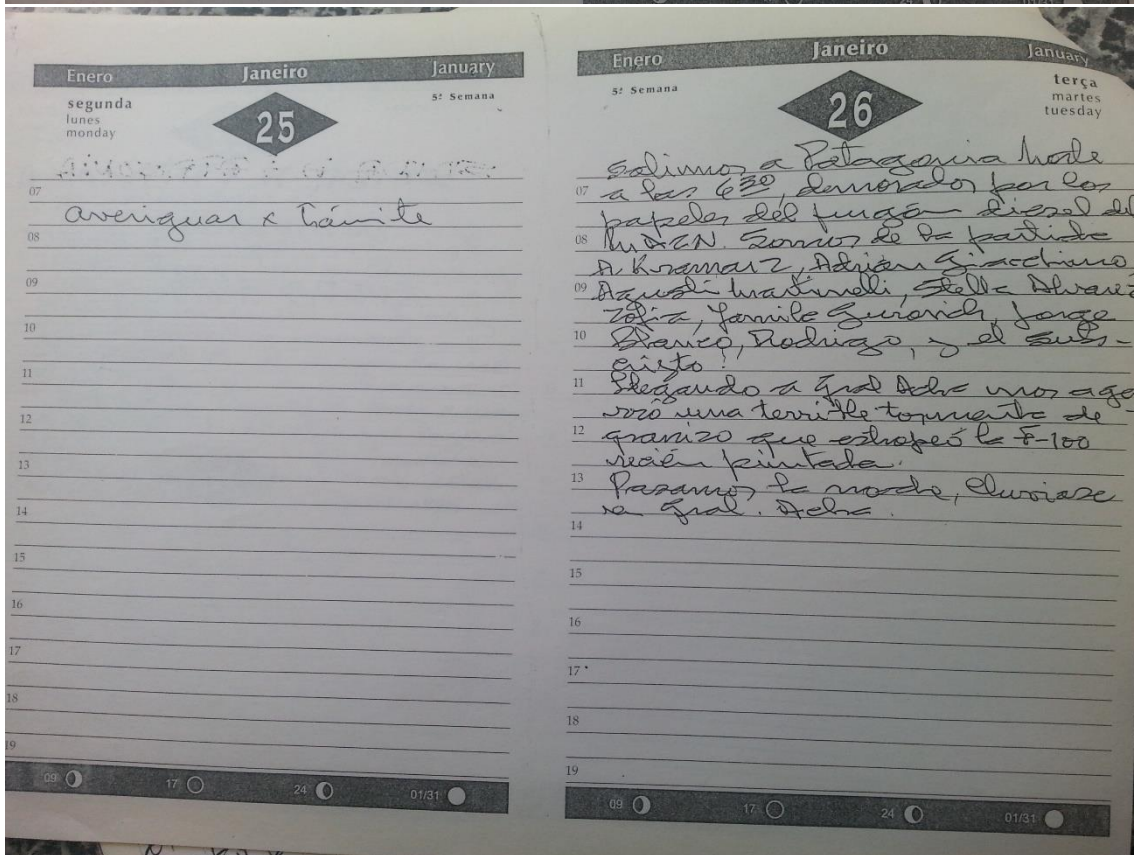 Enero Janeiro January
segunda
lunes
monday
25
5ª Semana
07
averiguar x trámite
08
09
10
11
12
13
14
15
16
17
18
19
09 17 24 01/31
Enero Janeiro January
5ª Semana
26
terça
martes
tuesday
Salimos a Patagonia Norte
07 a las 6 30, demorados por los
papeles del furgón diesel del
08 MACN. Somos de la partida
A. Kramarz, Adrián Giacchino,
09 Agustí Martinelli, Stella Alvarez
Yamila Gurovich, Jorge
10 Blanco, Rodrigo, y el subs-
cripto!
11 Llegando a Gral Acha nos aga
rró una terrible tormenta de
12 granizo que estropeó la F-100
recién pintada.
13 Pasamos la noche, lluviosa
en Gral. Acha.
14
15
16
17
18
19
09 17 24 01/31